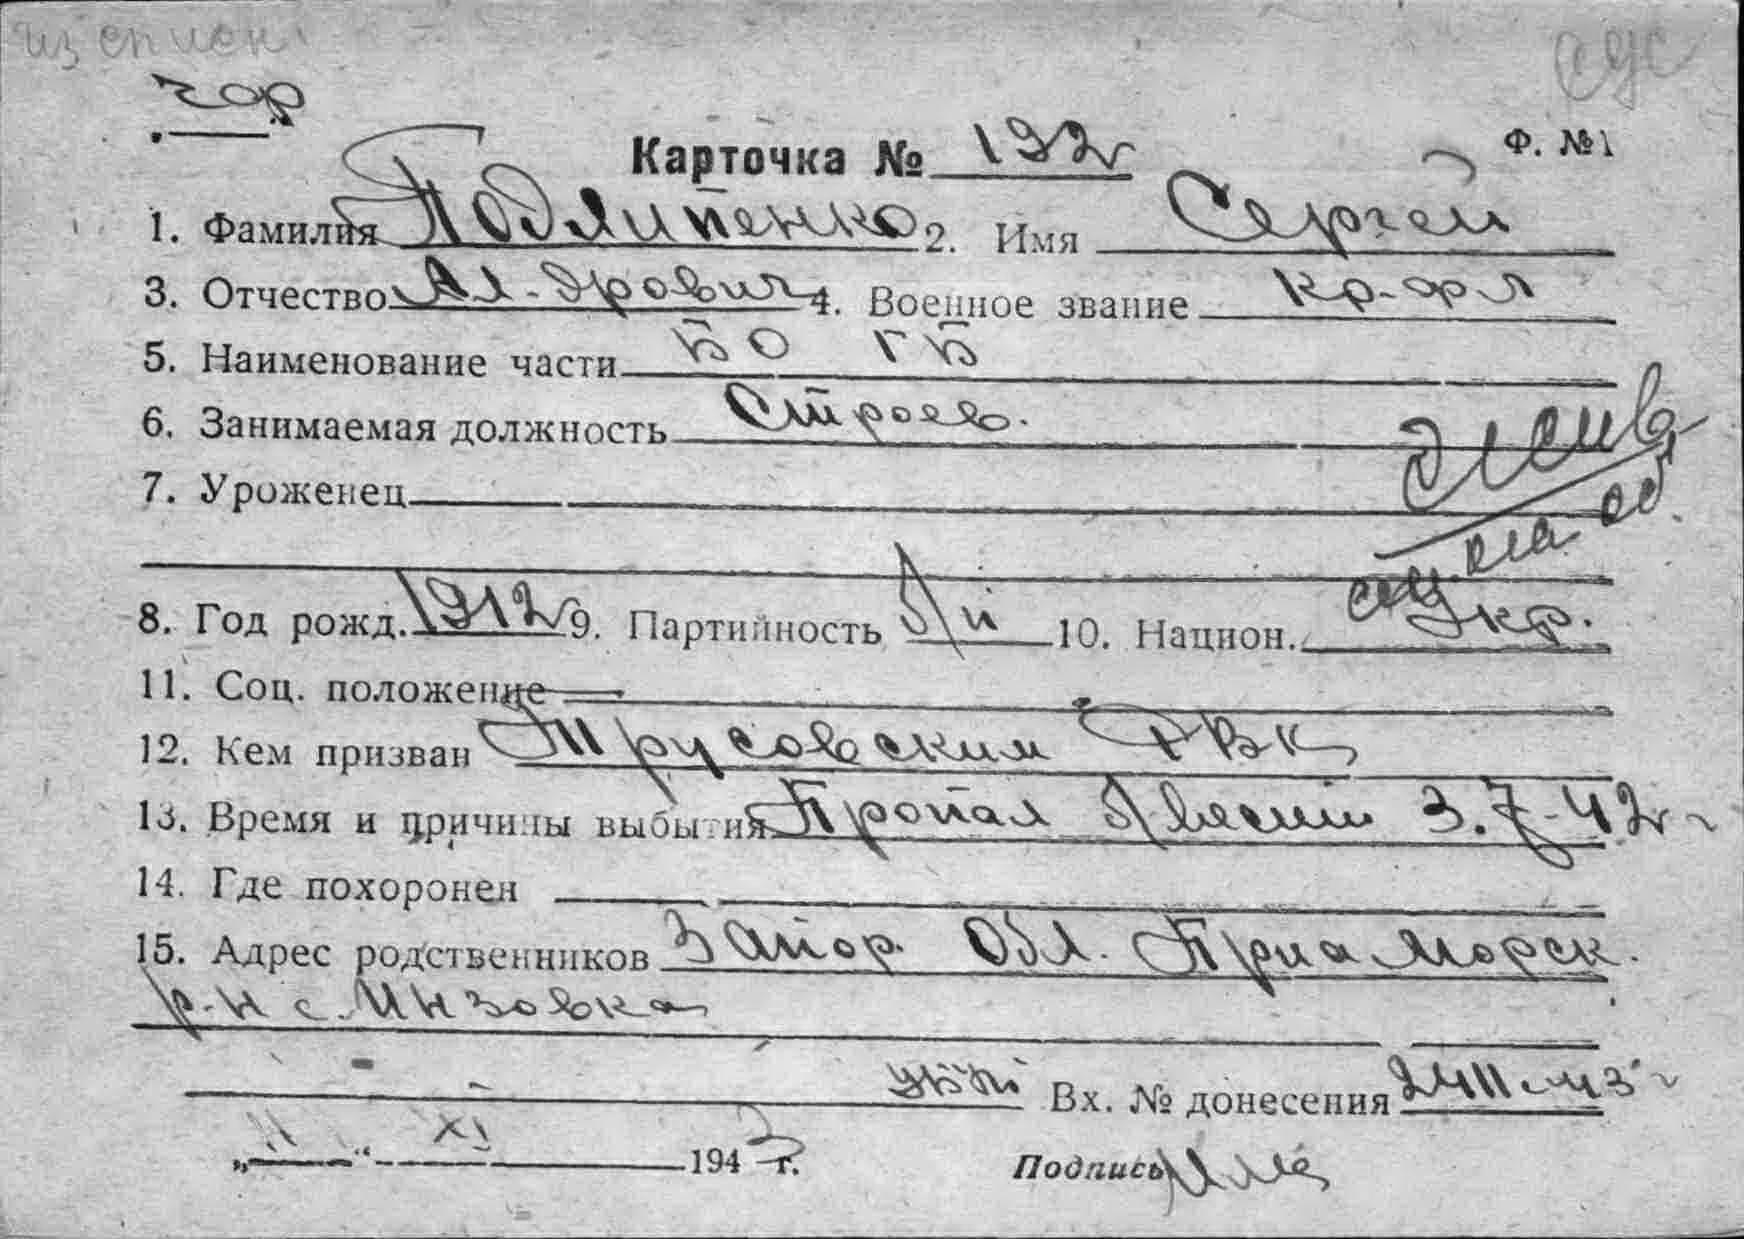 из списк
чор
Карточка № 192г Ф. №1
1. Фамилия Подлипенко 2. Имя Сергей
3. Отчество Ал-дрович 4. Военное звание кр-фл
5. Наименование части БО ГБ
6. Занимаемая должность Строев.
7. Уроженец
жив
на об
8. Год рожд. 1912 9. Партийность 10. Национ. Укр.
11. Соц. положение —
12. Кем призван Трусовским РВК
13. Время и причины выбытия Пропал без вести 3.7-42г
14. Где похоронен
15. Адрес родственников Запор. Обл. Приаморск.
р-н с. Инзовка
Вх. № донесения
„11“ XI 1943 г. Подпись